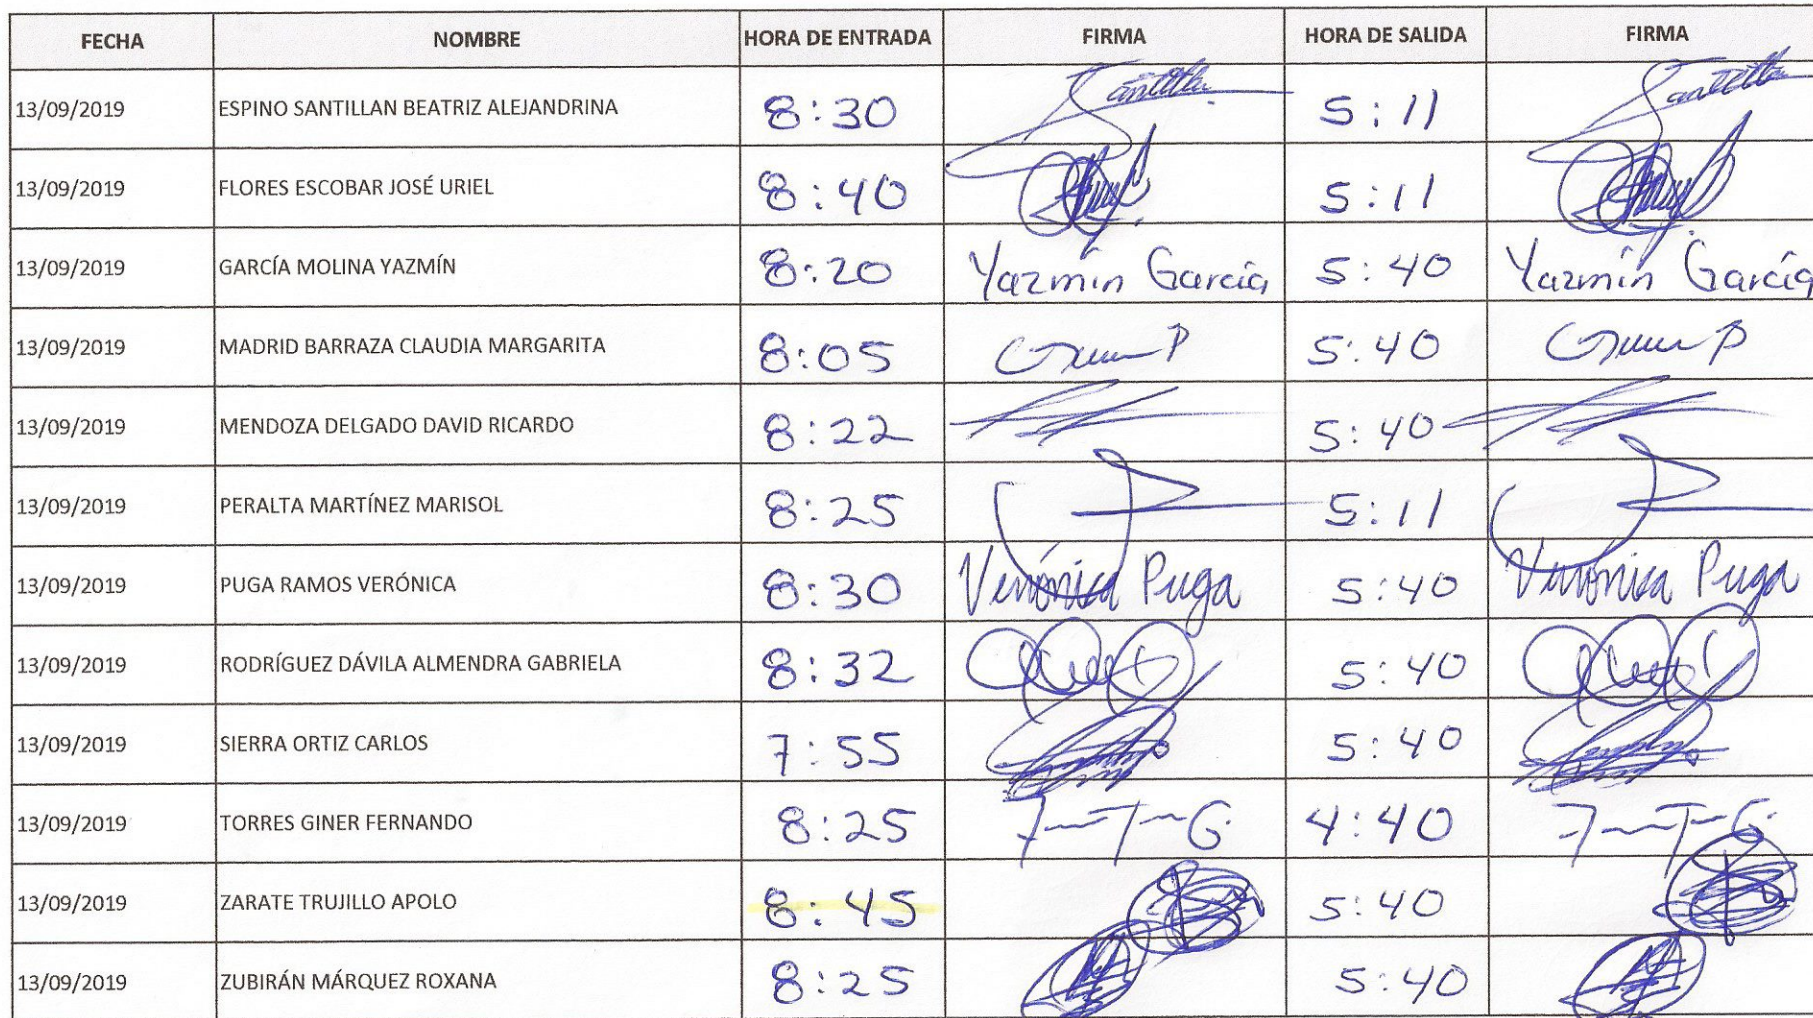 FECHA NOMBRE HORA DE ENTRADA FIRMA HORA DE SALIDA FIRMA
13/09/2019 ESPINO SANTILLAN BEATRIZ ALEJANDRINA 8:30 5:11
13/09/2019 FLORES ESCOBAR JOSÉ URIEL 8:40 5:11
13/09/2019 GARCÍA MOLINA YAZMÍN 8:20 Yazmín García 5:40 Yazmín García
13/09/2019 MADRID BARRAZA CLAUDIA MARGARITA 8:05 5:40
13/09/2019 MENDOZA DELGADO DAVID RICARDO 8:22 5:40
13/09/2019 PERALTA MARTÍNEZ MARISOL 8:25 5:11
13/09/2019 PUGA RAMOS VERÓNICA 8:30 Verónica Puga 5:40 Verónica Puga
13/09/2019 RODRÍGUEZ DÁVILA ALMENDRA GABRIELA 8:32 5:40
13/09/2019 SIERRA ORTIZ CARLOS 7:55 5:40
13/09/2019 TORRES GINER FERNANDO 8:25 4:40
13/09/2019 ZARATE TRUJILLO APOLO 8:45 5:40
13/09/2019 ZUBIRÁN MÁRQUEZ ROXANA 8:25 5:40